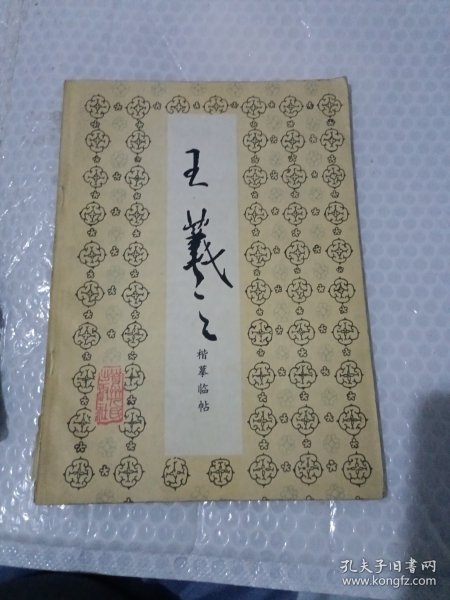 王羲之
楷摹临帖
孔夫子旧书网
www.kongfz.com